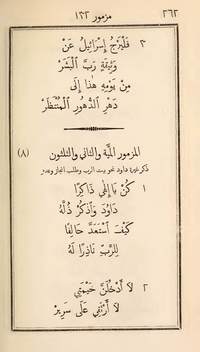 ٢٦٢ مزمور ١٣٢
٣ فَلْيَرْجُ إِسْرَائِيلُ عَنْ
وَثِيقَةٍ رَبَّ الْبَشَرْ
مِنْ يَوْمِهِ هٰذَا إِلَى
دَهْرِ الدُّهُورِ الْمُنْتَظَرْ
المزمور المئة والثاني والثلثون (٨)
ذكر غيرة داود نحو بيت الرب وطلب
١ كُنْ يَا إِلٰهِي ذَاكِرًا
دَاوُدَ وَاذْكُرْ ذُلَّهُ
كَيْفَ اسْتَعَدَّ حَالِفًا
لِلرَّبِّ نَاذِرًا لَهُ
٢ لَا أَدْخُلَنَّ خَيْمَتِي
لَا أَرْتَقِي عَلَى سَرِيرْ